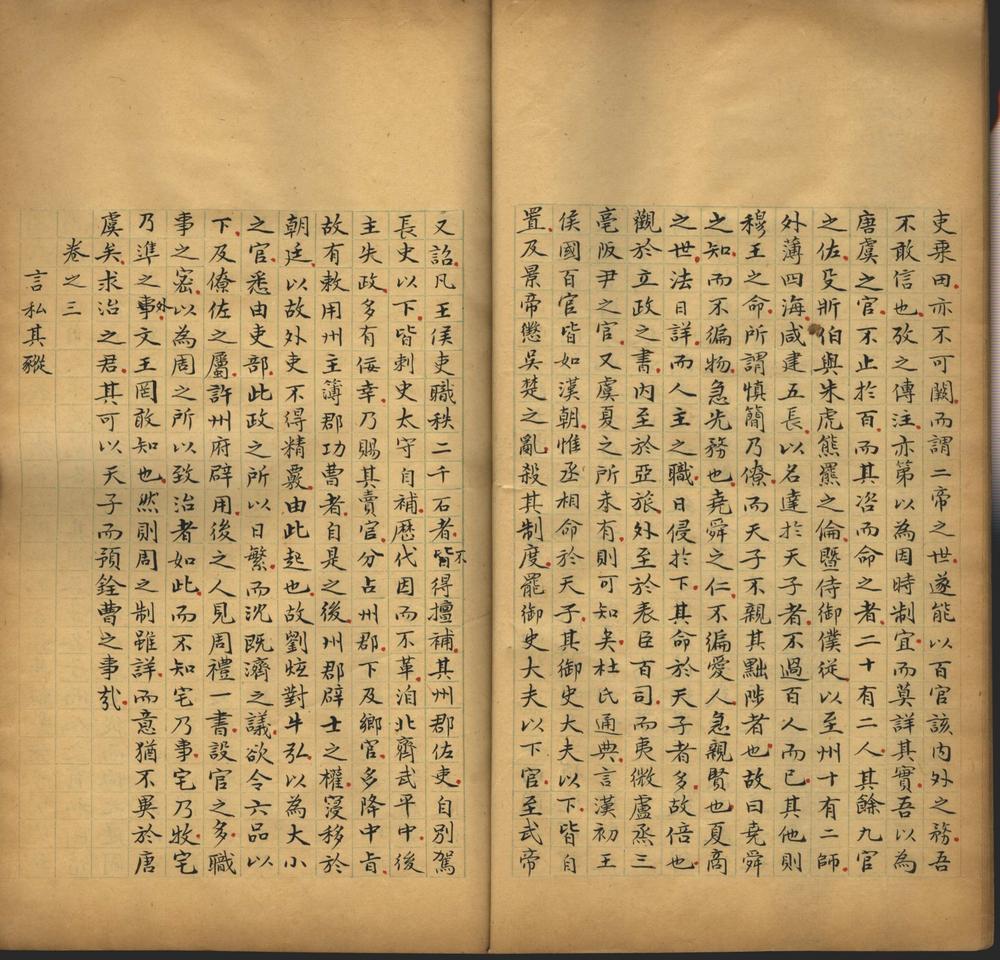 吏乘田亦不可闕而謂二帝之世遂能以百官該內外之務吾
不敢信也攷之傳注亦第以為因時制宜而莫詳其實吾以為
唐虞之官不止於百而其咨而命之者二十有二人其餘九官
之佐殳斨伯與朱虎熊羆之倫暨侍御僕從以至州十有二師
外薄四海咸建五長以名達於天子者不過百人而已其他則
穆王之命所謂慎簡乃僚而天子不親其黜陟者也故曰堯舜
之知而不徧物急先務也堯舜之仁不徧愛人急親賢也夏商
之世法日詳而人主之職日侵於下其命於天子者多故倍也
觀於立政之書內至於亞旅外至於表臣百司而夷微盧烝三
亳阪尹之官又虞夏之所未有則可知矣杜氏通典言漢初王
侯國百官皆如漢朝惟丞相命於天子其御史大夫以下皆自
置及景帝懲吳楚之亂殺其制度罷御史大夫以下官至武帝
又詔凡王侯吏職秩二千石者不皆得擅補其州郡佐吏自別駕
長史以下皆刺史太守自補歷代因而不革洎北齊武平中後
主失政多有佞幸乃賜其賣官分占州郡下及鄉官多降中旨
故有敕用州主簿郡功曹者自是之後州郡辟士之權寖移於
朝廷以故外吏不得精覈由此起也故劉炫對牛弘以為大小
之官悉由吏部此政之所以日繁而沈既濟之議欲令六品以
下及僚佐之屬許州府辟用後之人見周禮一書設官之多職
事之密以為周之所以致治者如此而不知宅乃事宅乃牧宅
乃準之外事文王罔敢知也然則周之制雖詳而意猶不異於唐
虞矣求治之君其可以天子而預銓曹之事哉
卷之三
言私其豵